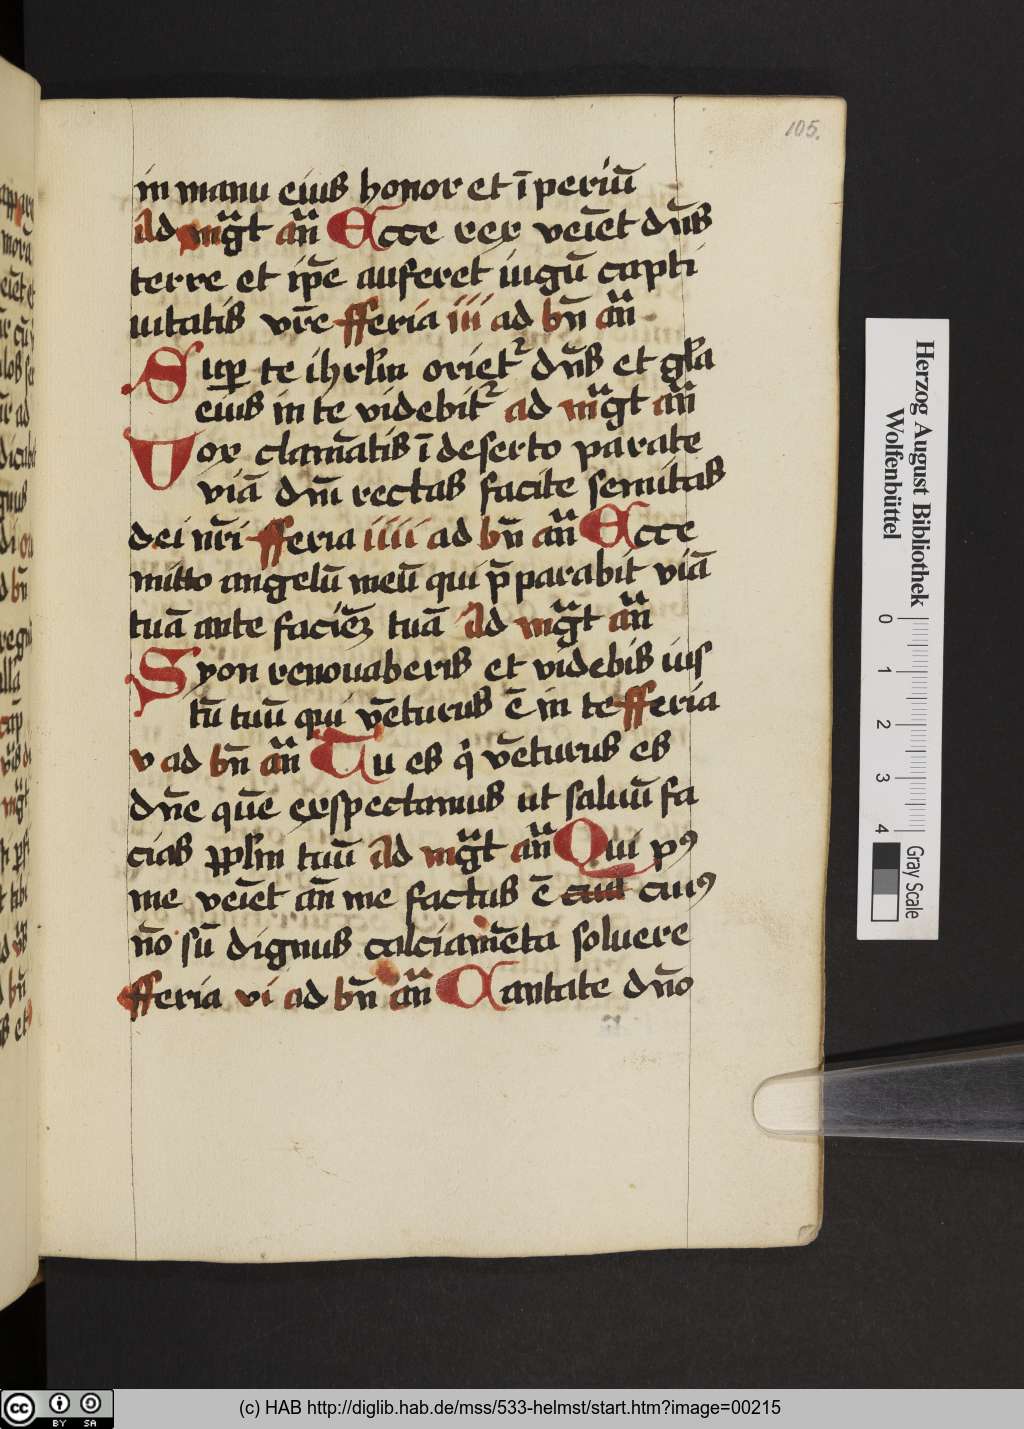 105.
in manu eius honor et ī periū
Ad mg̃t añ Ecce rex veiet dñs
terre et ip̄e auferet iugū capti
uitatis vr̄e fferia iii ad bñ añ
Sup te ihrl̄m oriet᷑ dñs et gl̄a
eius in te videbit᷑ ad mg̃t añ
Vox clamātis ī deserto parate
viā dñi rectas facite semitas
dei nr̄i fferia iiii ad bñ añ Ecce
mitto angelū meū qui p̄parabit viā
tuā ante faciēz tuā Ad mg̃t añ
Syon renouaberis et videbis ius
tū tuū qui vēturus ē in te fferia
v ad bñ añ Tu es q̇ vēturus es
dñe quē exspectamus ut saluū fa
cias ppl̄m tuū Ad mg̃t añ Qui pꝰ
me veiēt añ me factus ē cuiꝰ
nō sū dignus calciamēta soluere
fferia vi ad bñ añ Cantate dño
Herzog August Bibliothek
Wolfenbüttel
0 1 2 3 4
Gray Scale
cc BY SA
(c) HAB http://diglib.hab.de/mss/533-helmst/start.htm?image=00215